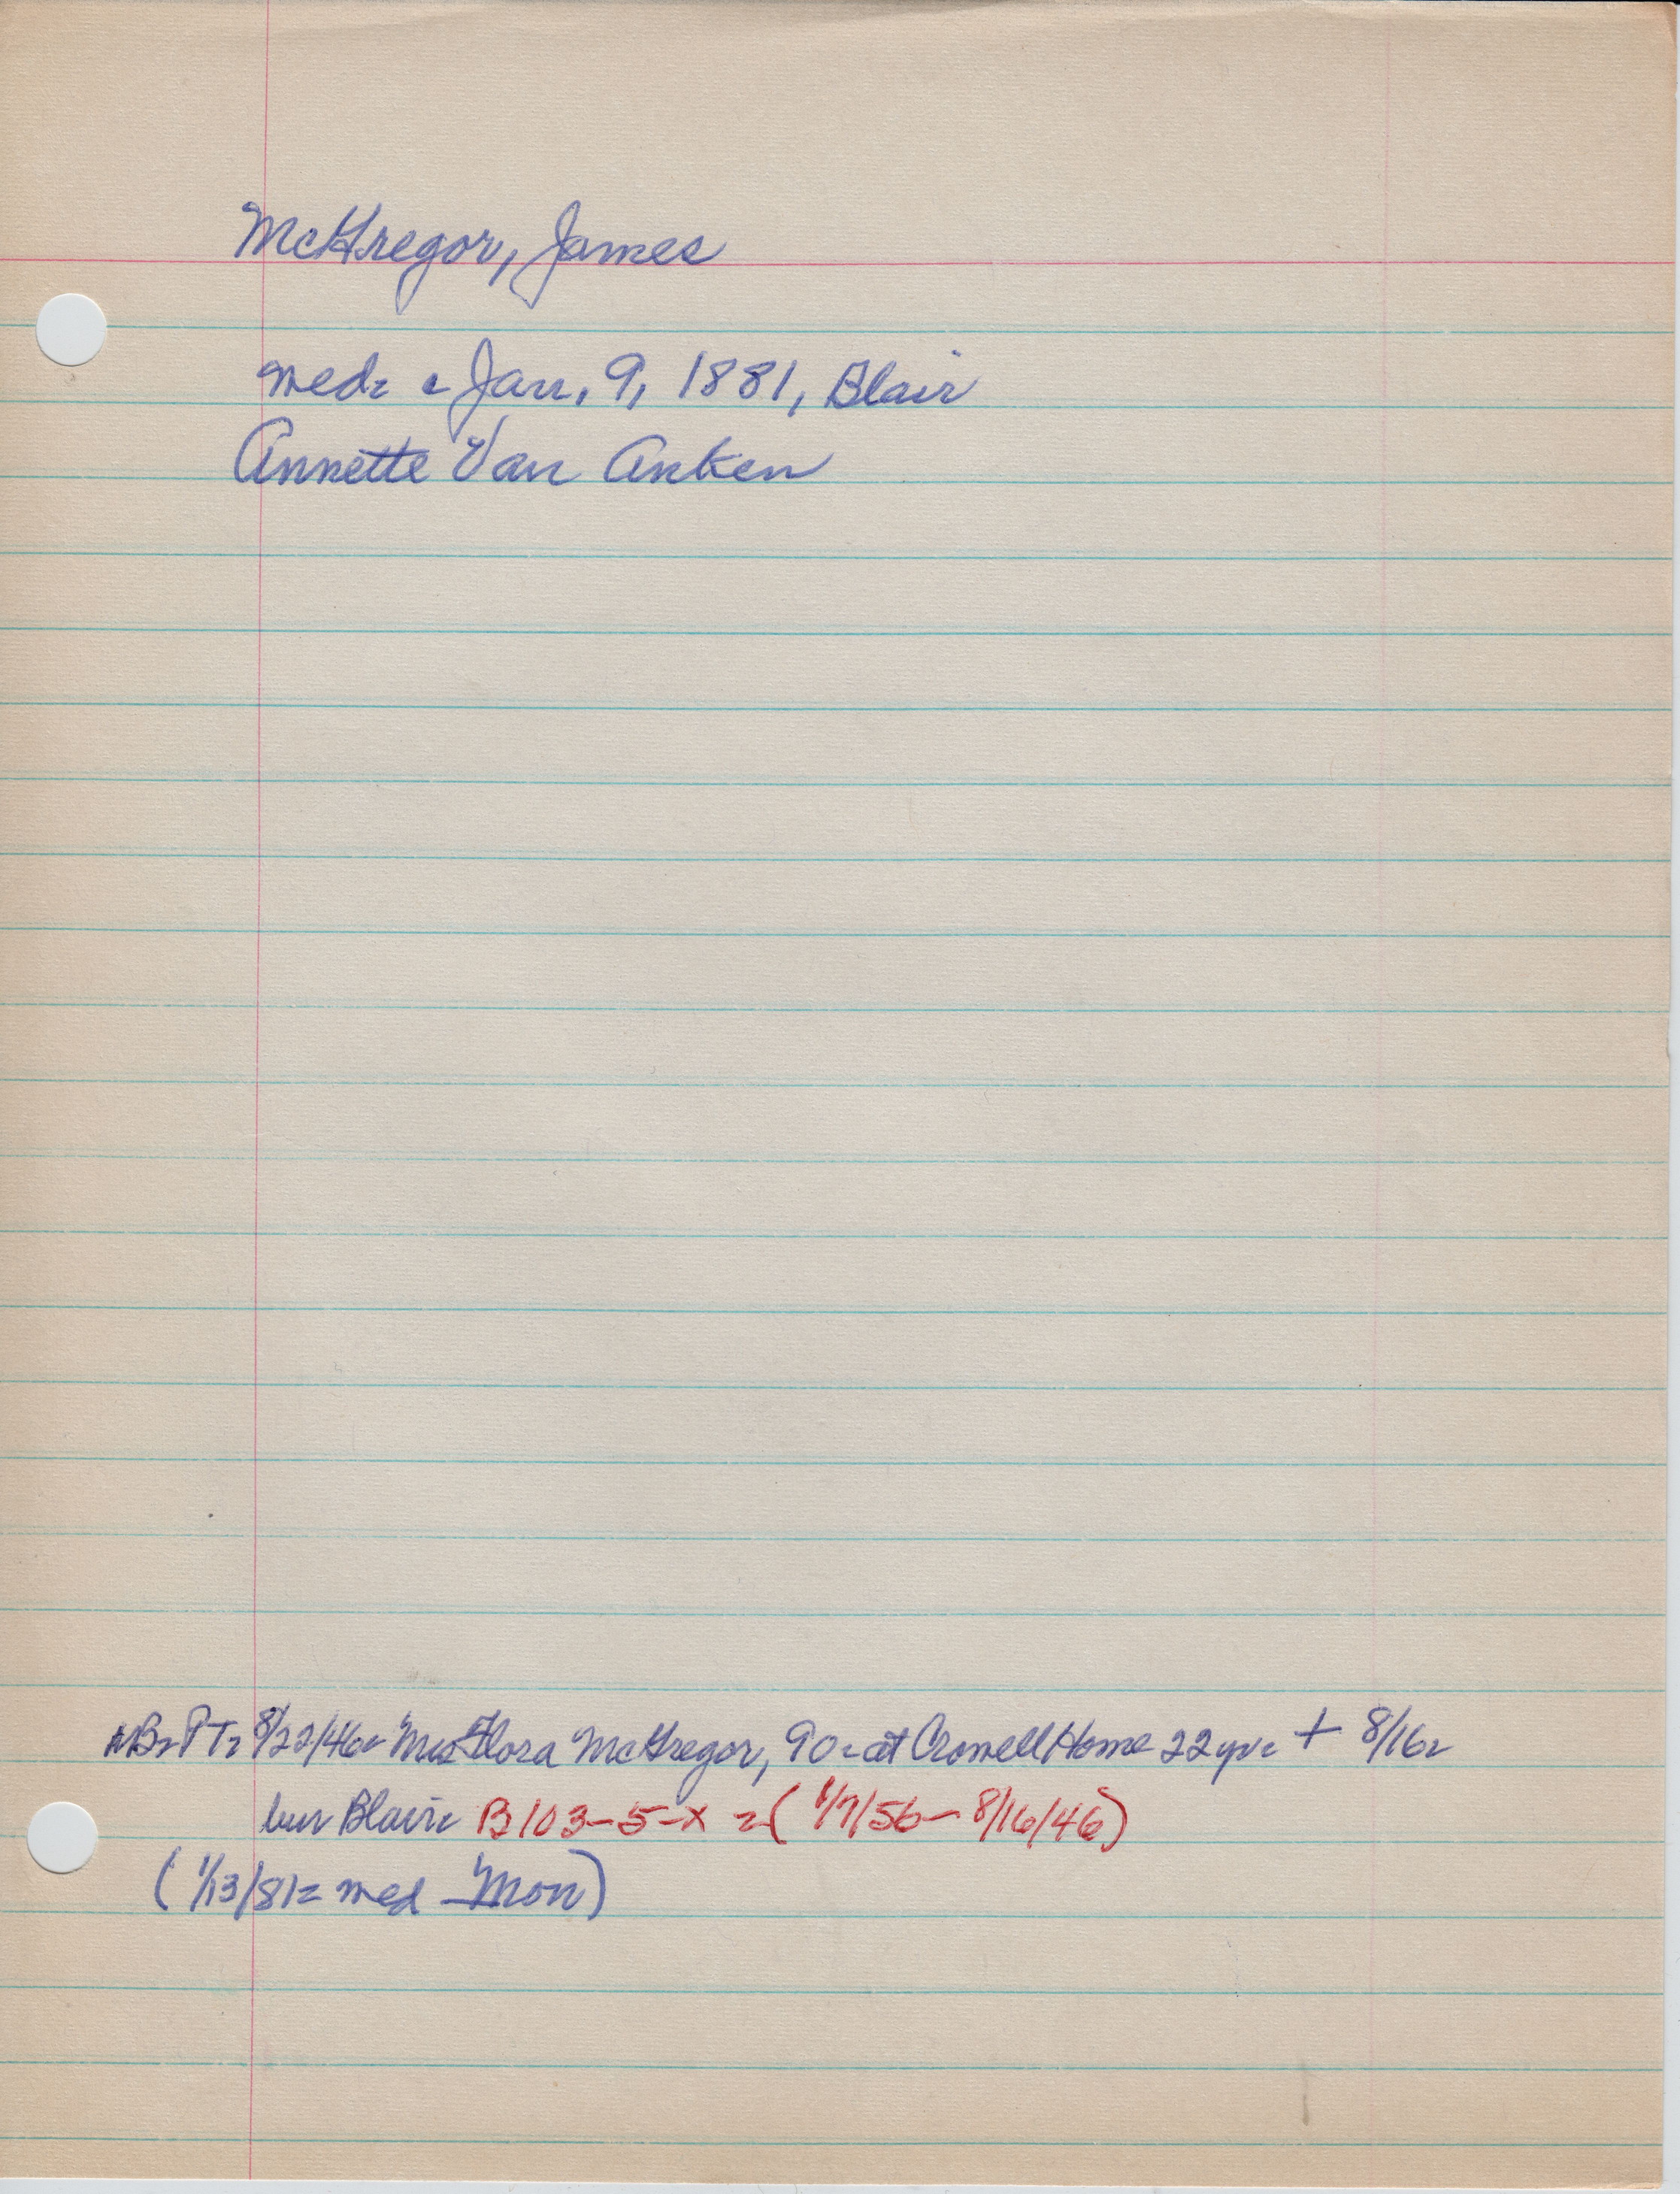 McGregor, James
med- c Jan. 9, 1881, Blair
Annette Van Anken
B-PT- 8/22/46- Mrs Flora McGregor, 90-at Crowell Home 22 yr- + 8/16-
bur Blair- B103-5-x -(1/7/56-8/16/46)
(1/13/81- med Mon)